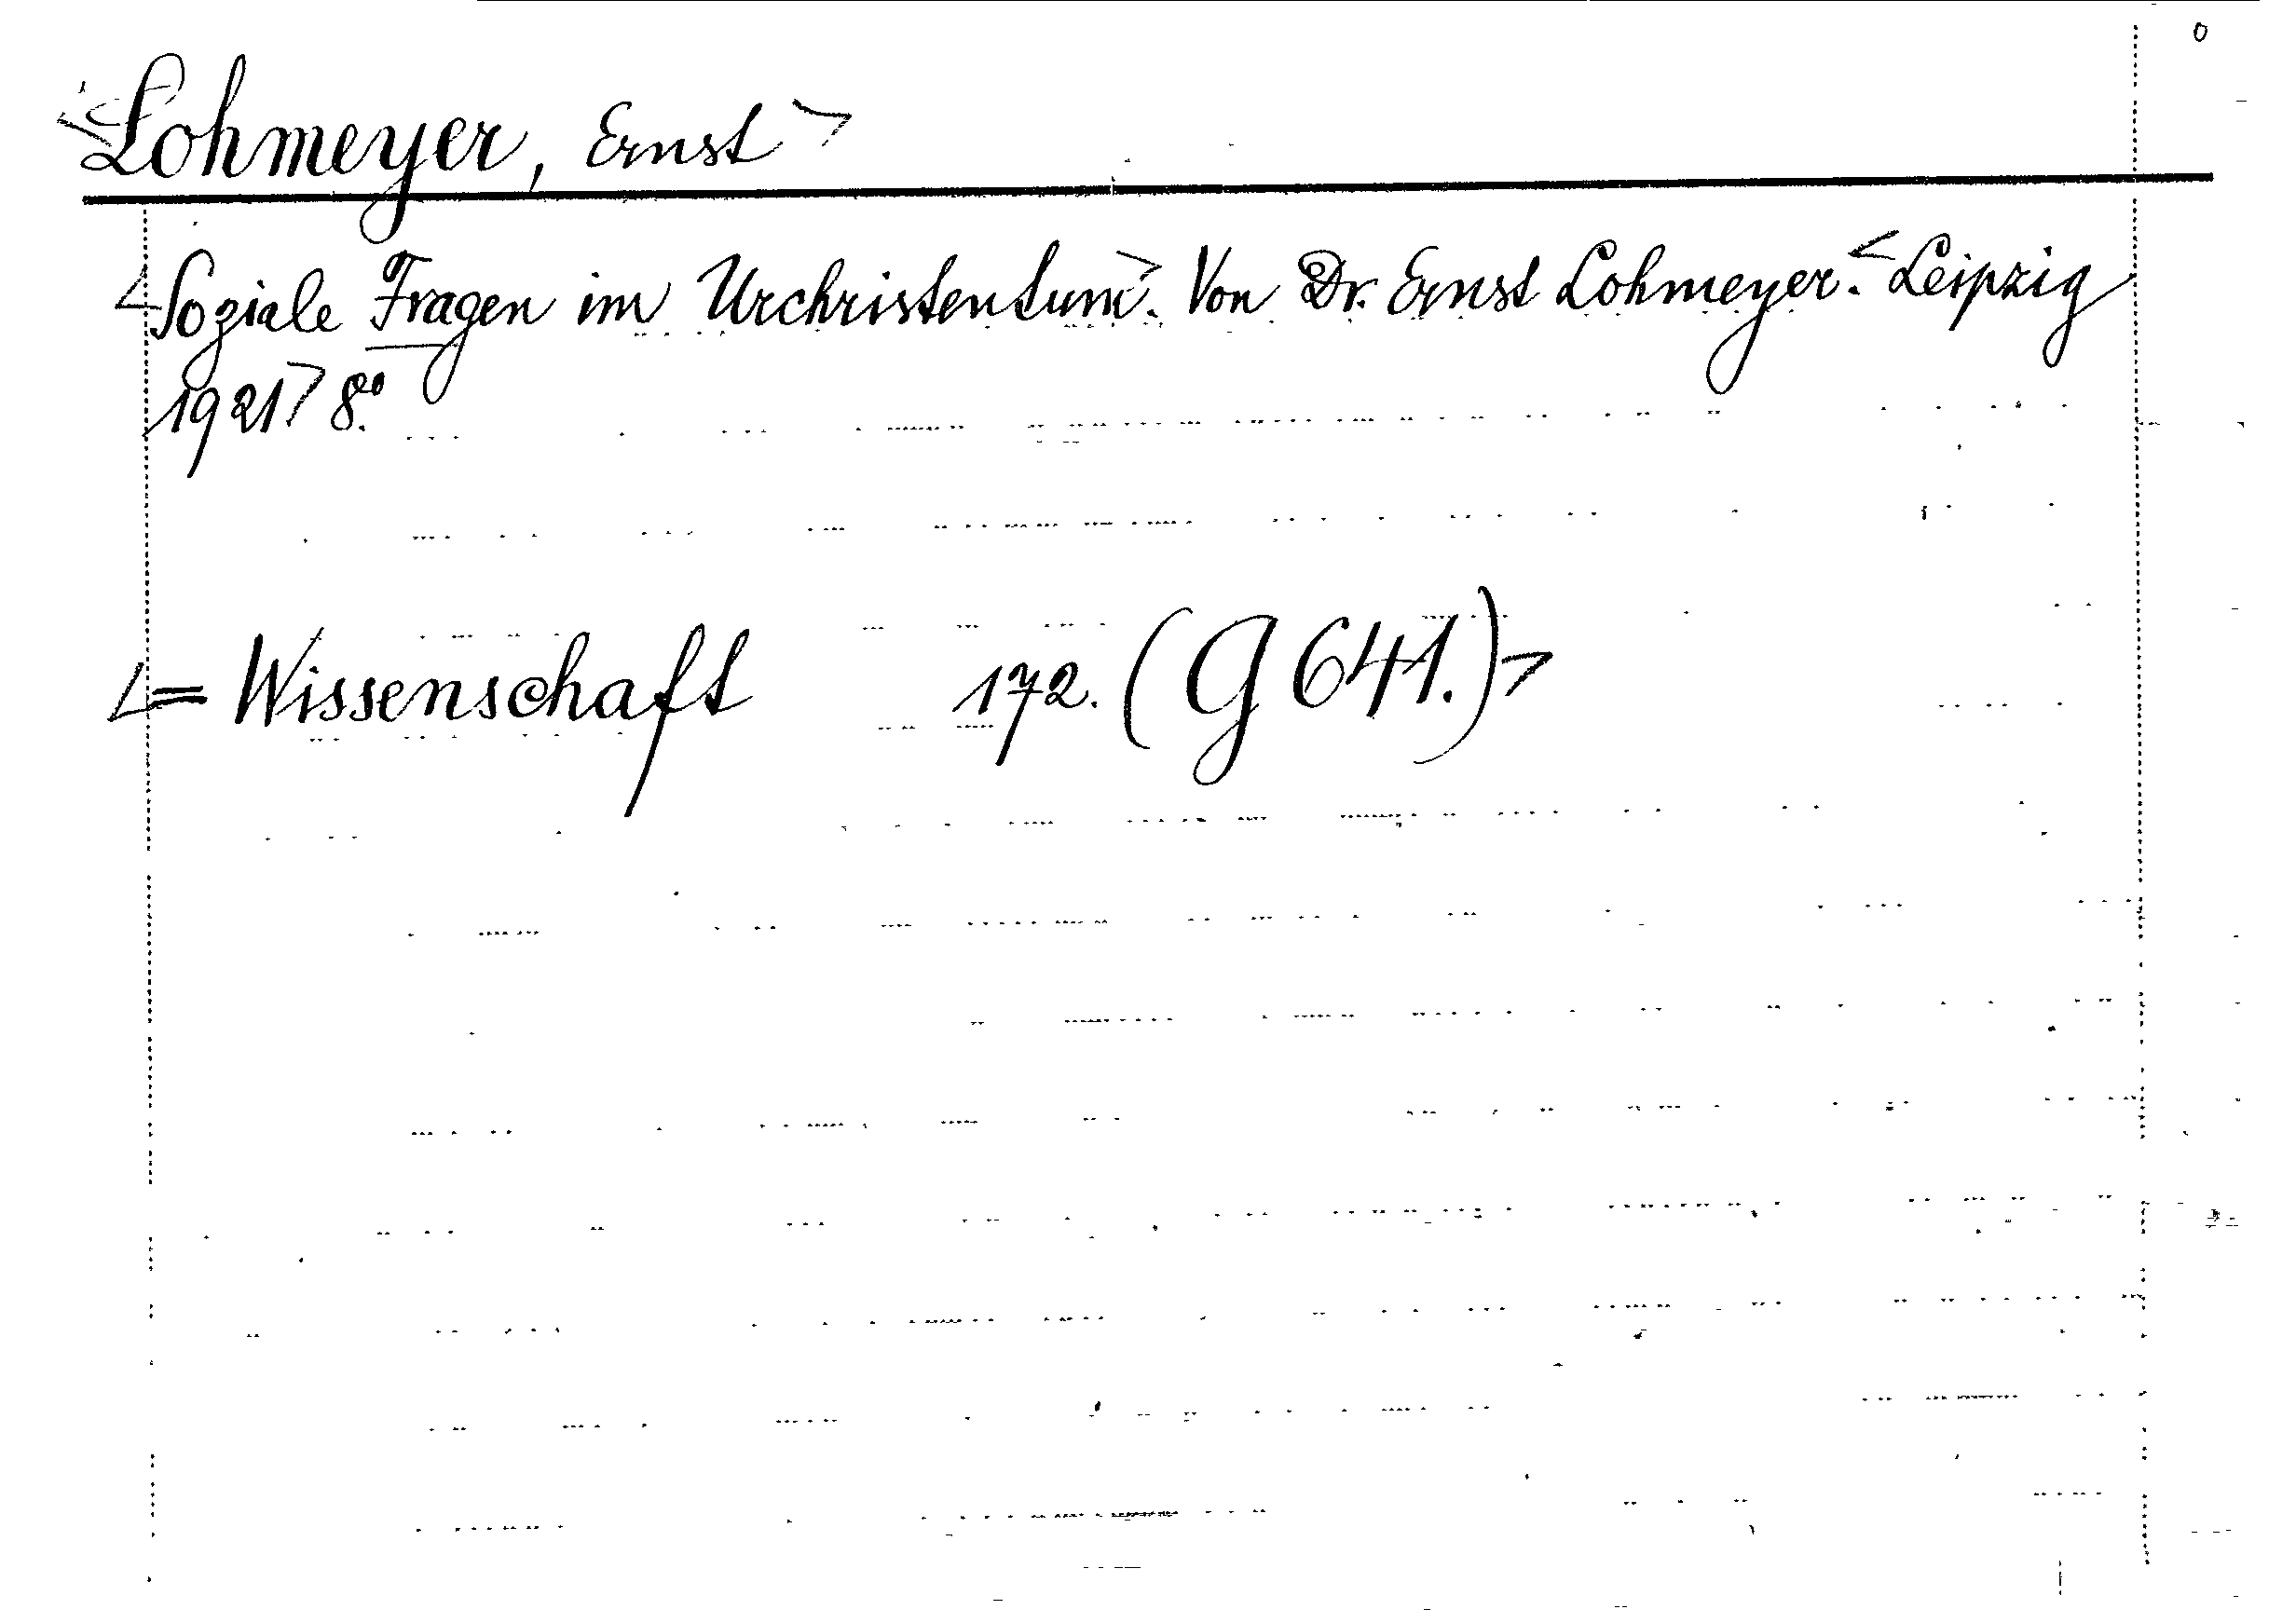 <Lohmeyer, Ernst>
<Soziale Fragen im Urchristentum>. Von Dr. Ernst Lohmeyer. <Leipzig
1921> 8°.
<= Wissenschaft 172. (G 641.)>